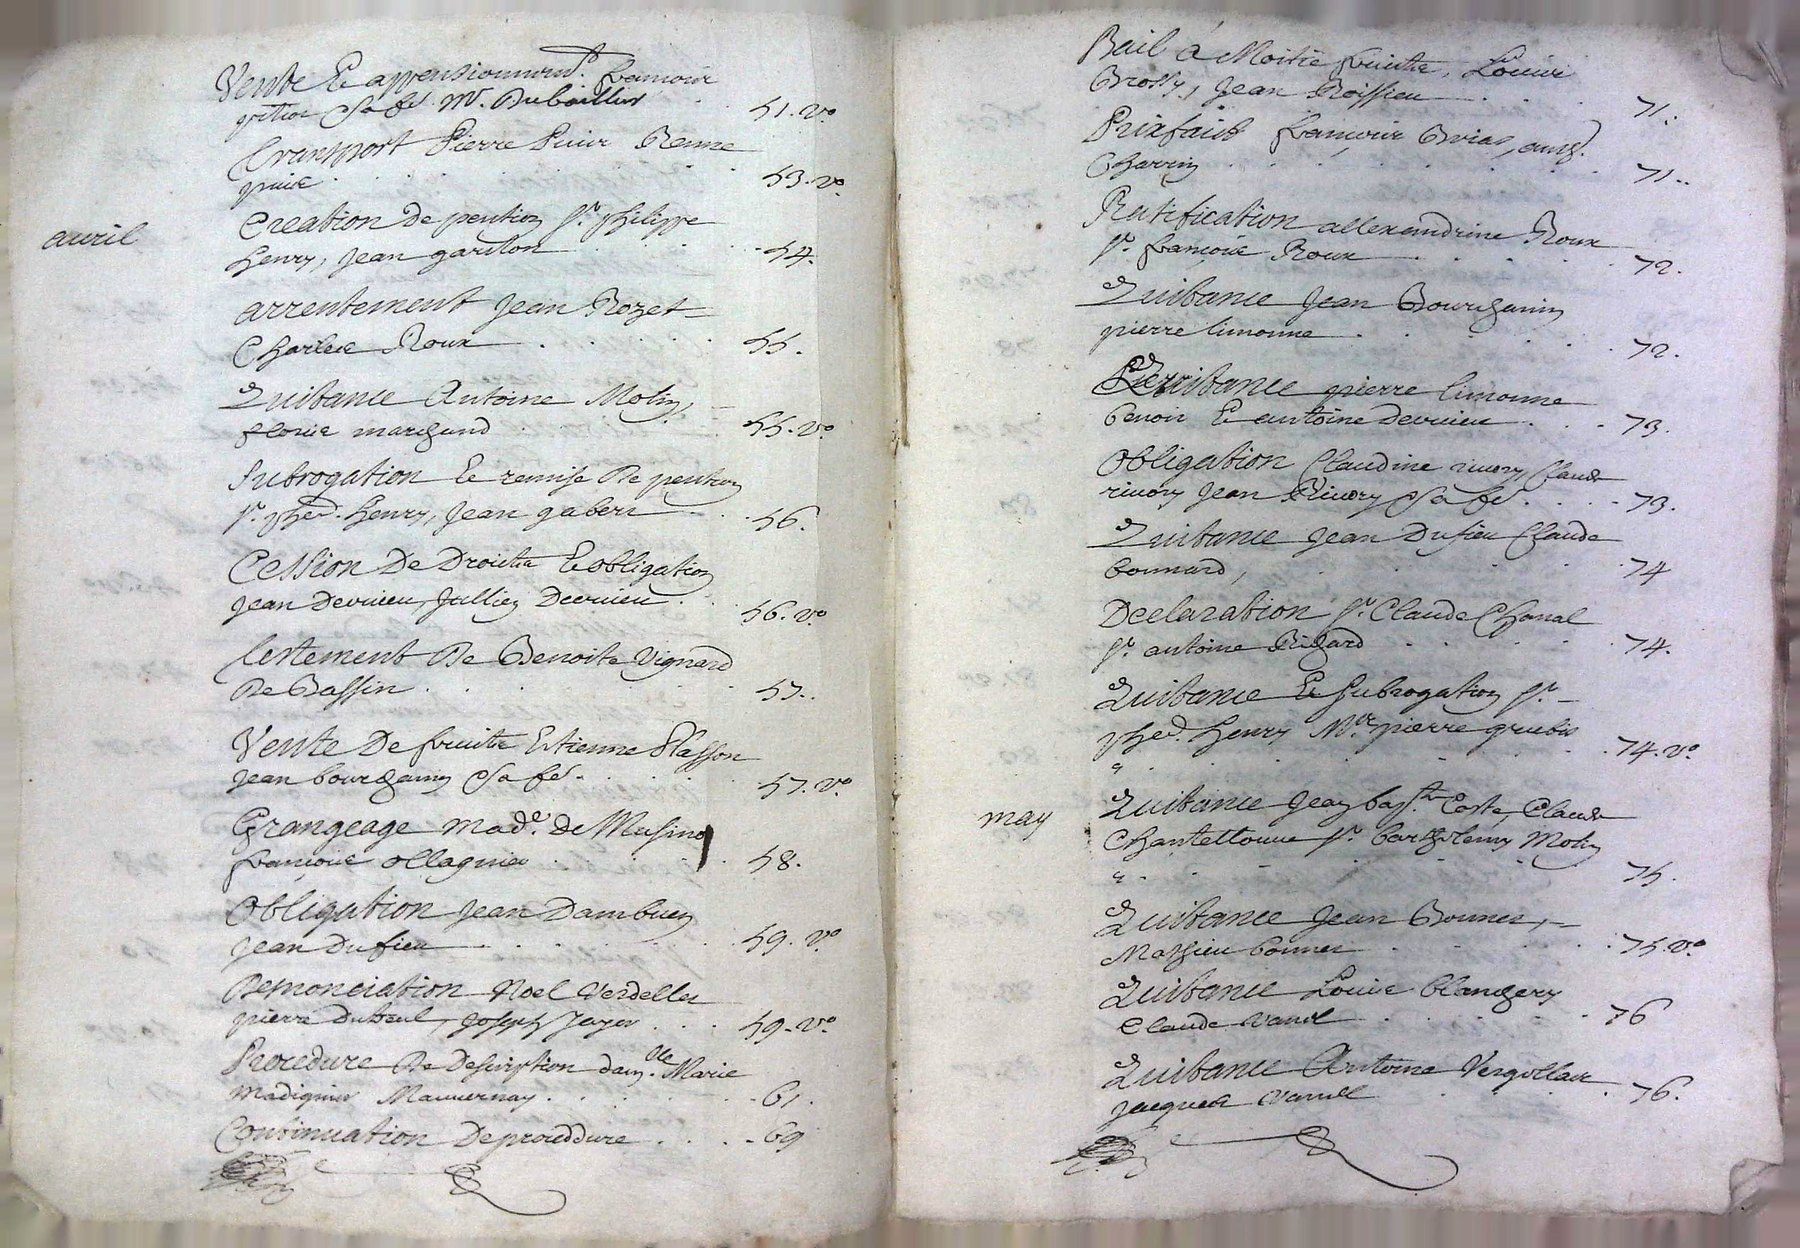 Vente Et appensionnemt. francois
petior Sa fe. Mr. Dubaillur . . 51. vo
transport Pierre Reinne
. . . . . 53. vo
avril
Creation De pention sr. philippe
henry, Jean garilon . . . 54.
arrentement Jean Rozet
Charles Roux . . . . . 55.
Quitance Antoine Molin,
florie marchand . . . 55. vo
Subrogation Et remise De pention
sr. phed. henry, Jean gaberi . . 56.
Cession De Droits Et obligation
Jean Devuieu, Jullien Devuieu . . 56. vo
testement De Benoite Vignard
De Bassin . . . . . 57.
Vente De fruits Etienne Plasson
Jean bourchanin Sa fe. . . . 57. vo
Grangeage made. de Musino
francoise ollagnier . . . . 58.
Obligation Jean Dambuen
Jean Dufieu . . . . . 59. vo
Renonciation Noel Verdellet
pierre Duteul, Joseph Jayer . . . 59. vo
Procedure De Description damlle. Marie
madignier Mauvernay . . . . 61.
Continuation De proceddure . . . 69
Bail à Moitié fruits, Louise
Brossy, Jean Boissieu . . . . 71.
Prixfait francois Brias, ant.
Charrin . . . . . 71.
Ratification allexandrine Roux
sr. francois Roux . . . . 72.
Quitance Jean Bourchanin
pierre limonne . . . . . 72.
Quitance pierre limonne
benoit Et antoine Devuieu . . . 73.
Obligation Claudine rivory, Claude
rivory Jean Rivory Sa fe. . . . 73.
Quitance Jean Dufieu Claude
bonnard, . . . . . 74
Declaration sr. Claude Chanal
sr. antoine Richard . . . . 74.
Quitance Et Subrogation sr.
phed. henry Mr. pierre grubis
" . . . . . 74. vo
may
Quitance Jean bapte. Coste, Claude
Chantellouve sr. barthelemy Molin
" . . . . . 75.
Quitance Jean Bonnet,
Mathieu bonnet . . . . . 75. vo
Quitance Louise blanchery
Claude vanel . . . . . 76
Quitance Antoine Vergollair
Jacques vanel . . . . . 76.